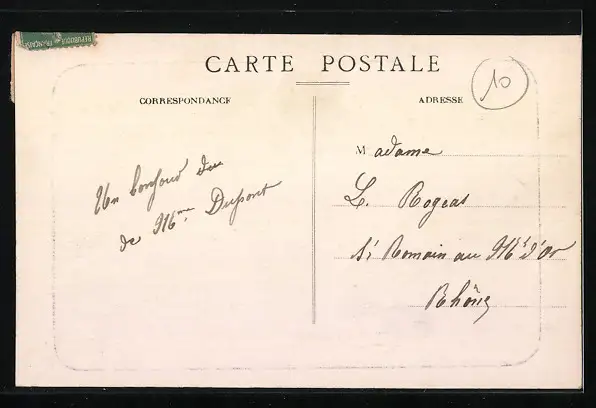 REPUBLIQUE FRANÇAISE
CARTE POSTALE
10
CORRESPONDANCE
ADRESSE
Un bonjour du
de Mme Dupont
Madame
L. Rogeas
St Romain au Mt d'Or
Rhône